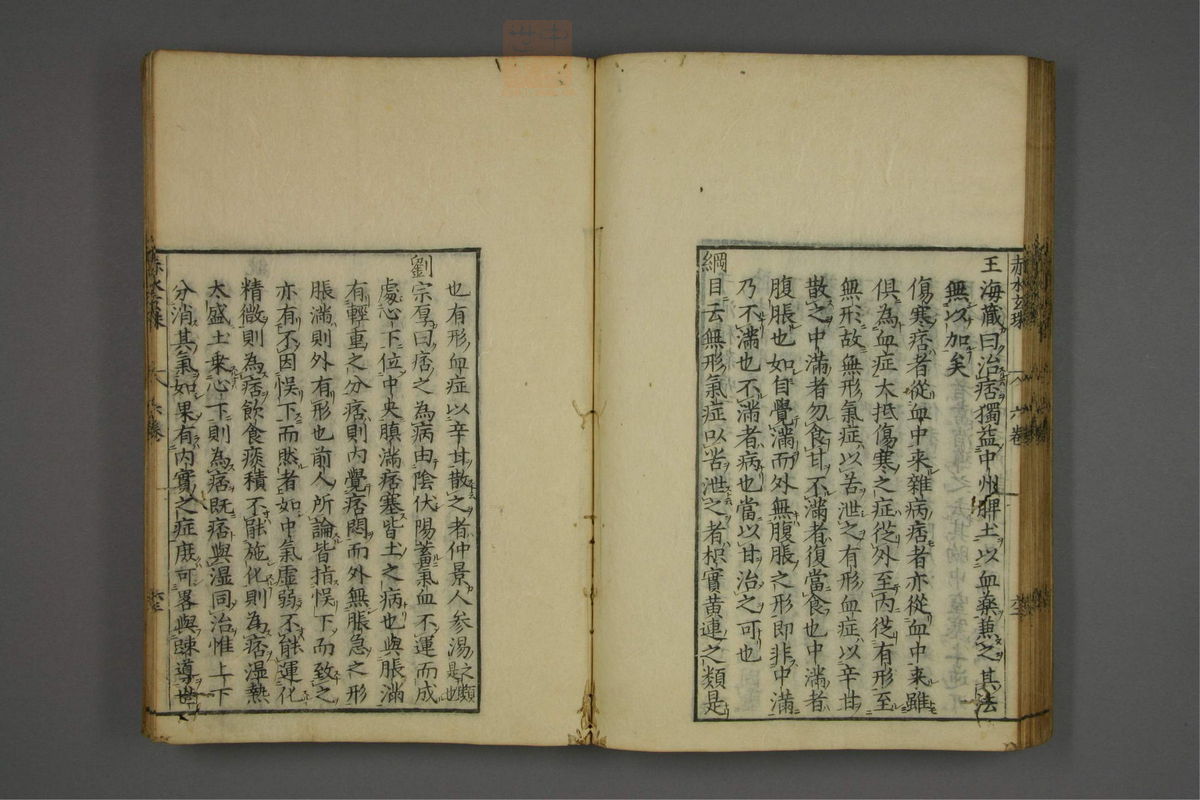 赤水玄珠 六卷
王海藏曰治痞獨益中州脾土以血藥兼之其法
無以加矣
傷寒痞者從血中来雜病痞者亦從血中来雖
俱為血症大抵傷寒之症從外至内從有形至
無形故無形氣症以苦泄之有形血症以辛甘
散之中滿者勿食甘不滿者復當食也中滿者
腹脹也如自覺滿而外無腹脹之形即非中滿
乃不滿也不滿者病也當以甘治之可也
綱目云無形氣症以苦泄之者枳實黄連之類是
也有形血症以辛甘散之者仲景人参湯之類是也
劉宗厚曰痞之為病由陰伏陽蓄氣血不運而成
處心下位中央䐜滿痞塞皆土之病也與脹滿
有輕重之分痞則内覺痞悶而外無脹急之形
脹滿則外有形也前人所論皆指悮下而致之
亦有不因悮下而然者如中氣虚弱不能運化
精微則為痞飲食痰積不能施化則為痞湿熱
太盛土乗心下則為痞既痞與湿同治惟上下
分消其氣如果有内實之症庶可畧與踈導世
赤水玄珠 六卷